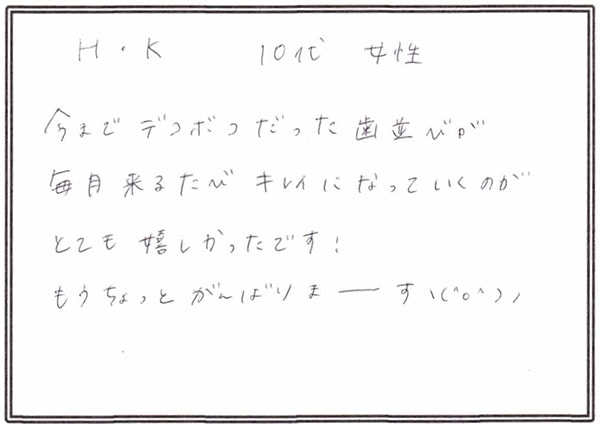 H・K 10代 女性
今までデコボコだった歯並びが
毎月来るたびキレイになっていくのが
とても嬉しかったです!
もうちょっとがんばりまーすヽ(^o^)ノ